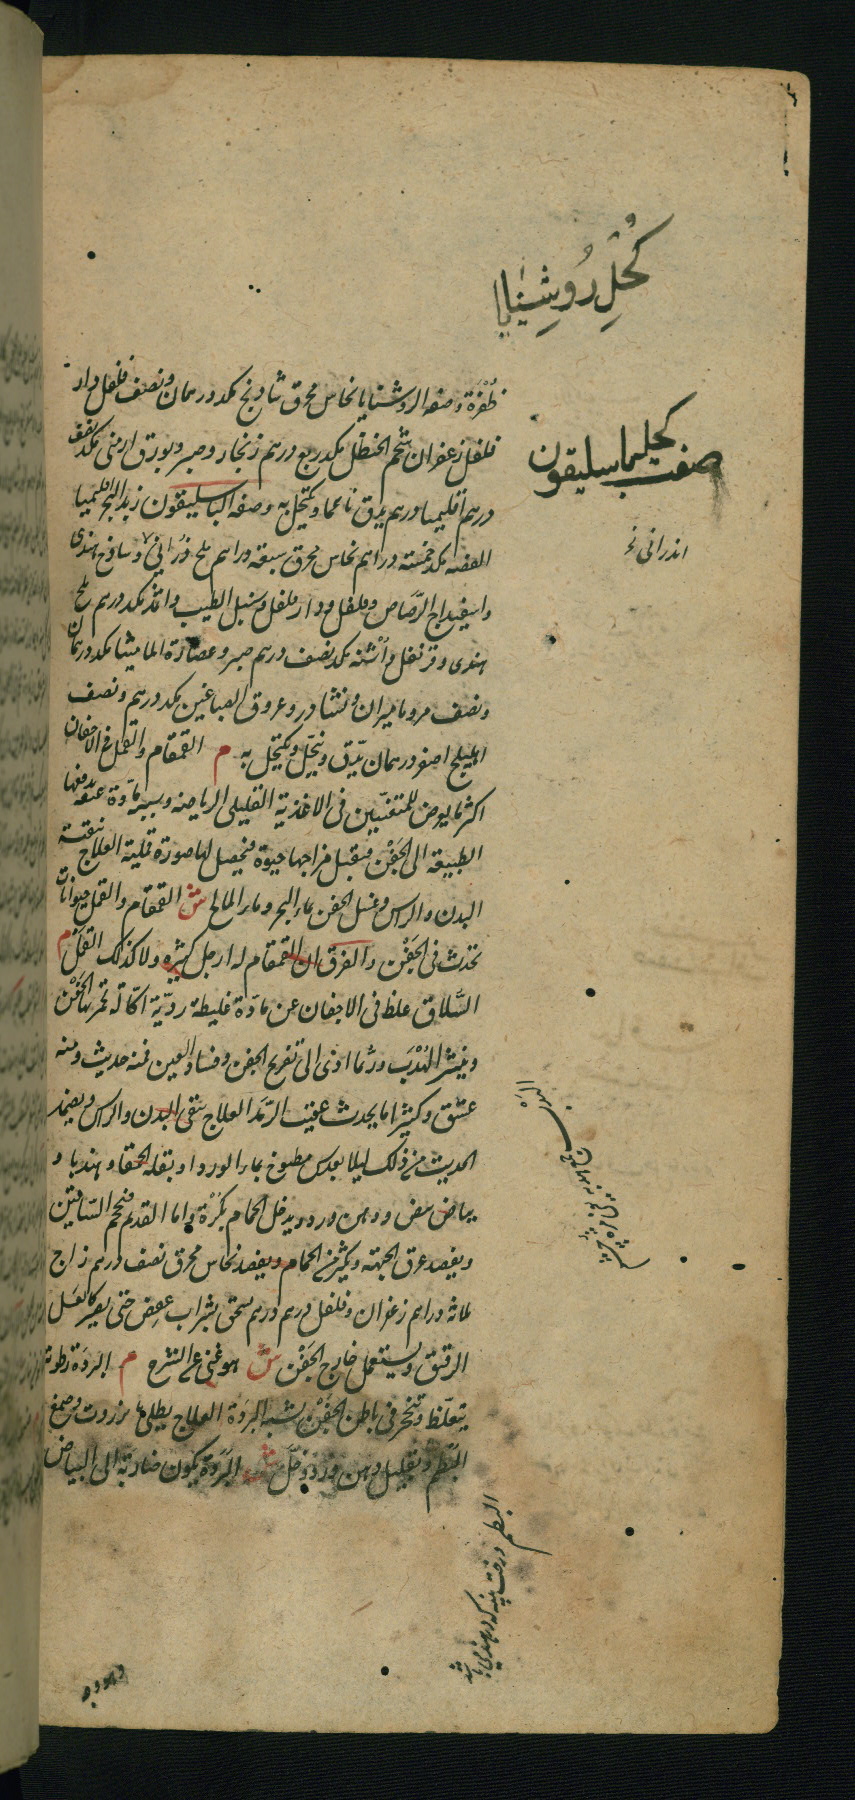 كُحْلِ رُوشِنَايا
ظفرة وصفه الروشنايا نحاس محرق شادنج مكد درهمان ونصف فلفل دار
فلفل زعفران شحم الحنظل مكد ربع درهم زنجار وصبر وبورق ارمنى مكد نصف
درهم اقليميا درهم يدق ناعما ويكتحل به وصفه الباسليقون زبد البحر اقليميا
الفضه مكد خمسة دراهم نحاس محرق سبعة دراهم ملح دَرَانِى وساذج هندى
واسفيداج الرصاص وفلفل ودار فلفل وسنبل الطيب واثمد مكد درهم ملح
هندى وقرنفل واشنه مكد نصف درهم صبر وعصارة الماميثا مكد درهمان
ونصف مر وماميران ونشادر وعروق الصباغين مكد درهم ونصف
اهليلج اصفر درهمان يدق وينخل ويكتحل به م القمقام والقمل فى الاجفان
اكثر ما يعرض للمتفننين فى الاغذية القليلى الرياضه وسببه مادة عفنة تدفعها
الطبيعه الى الجَفْن فيقبل مزاجها حيوة فيحصل لها صورة قملية العلاج تنقية
البدن والراس وغسل الجفن بماء البحر وماء المالح ش القمقام والقمل حيوانات
تحدث فى الجَفْن والفرق ان القمقام له ارجل كثيره ولا كذلك القمل م
السُّلاق غلظ فى الاجفان عن مادة غليظة رديّة اكّالة تحمر لها الجَفْن
وينثر الهُدْب وربما ادى الى تقريح الجفن وفساد العين فمنه حديث ومنه
عتيق وكثيرا ما يحدث عقيب الرمد العلاج ينقى البدن والراس ويضمد
الحديث من ذلك ليلا بعدس مطبوخ بماء الورد او بقلة الحمقا وهندبا و
بياض بيض ودهن ورد ويدخل الحمام بكرة واما القديم فيحجم الساقين
ويفصد عرق الجبهه ويكثر من الحمام ويفصد نحاس محرق نصف درهم زاج
ثلاثه دراهم زعفران وفلفل درهم درهم يسحق بشراب عفص حتى يصير كالعسل
الرقيق ويستعمل خارج الجَفْن ش هو غنى عن الشرح م البردة رطوبة
يتغلظ وتتحجر فى باطن الجَفْن يشبه البردة العلاج يطلى بانزروت وصمغ
البطم وبقليل دهن ورد وخلّ ش البردة يكون ضاربة الى البياض
صفت كحل باسليقون
اندرانى نخ
البطم درخت